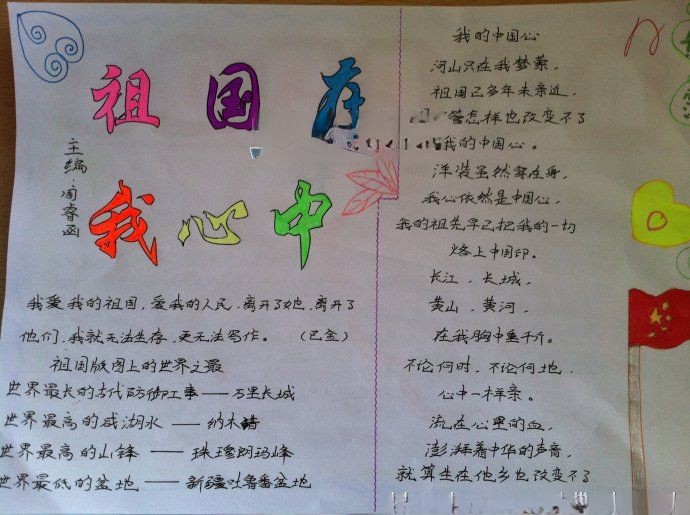 祖国存
我心中
主编:周睿函
我爱我的祖国,爱我的人民,离开了她,离开了
他们,我就无法生存,更无法写作。 (巴金)
祖国版图上的世界之最
世界最长的古代防御工事——万里长城
世界最高的咸湖水——纳木错
世界最高的山锋——珠穆朗玛峰
世界最低的盆地——新疆吐鲁番盆地
我的中国心
河山只在我梦萦,
祖国已多年未亲近,
管怎样也改变不了
我的中国心。
洋装虽然穿在身,
我心依然是中国心,
我的祖先早已把我的一切
烙上中国印。
长江,长城,
黄山,黄河,
在我胸中重千斤。
不论何时,不论何地,
心中一样亲。
流在心里的血,
澎湃着中华的声音,
就算生在他乡也改变不了